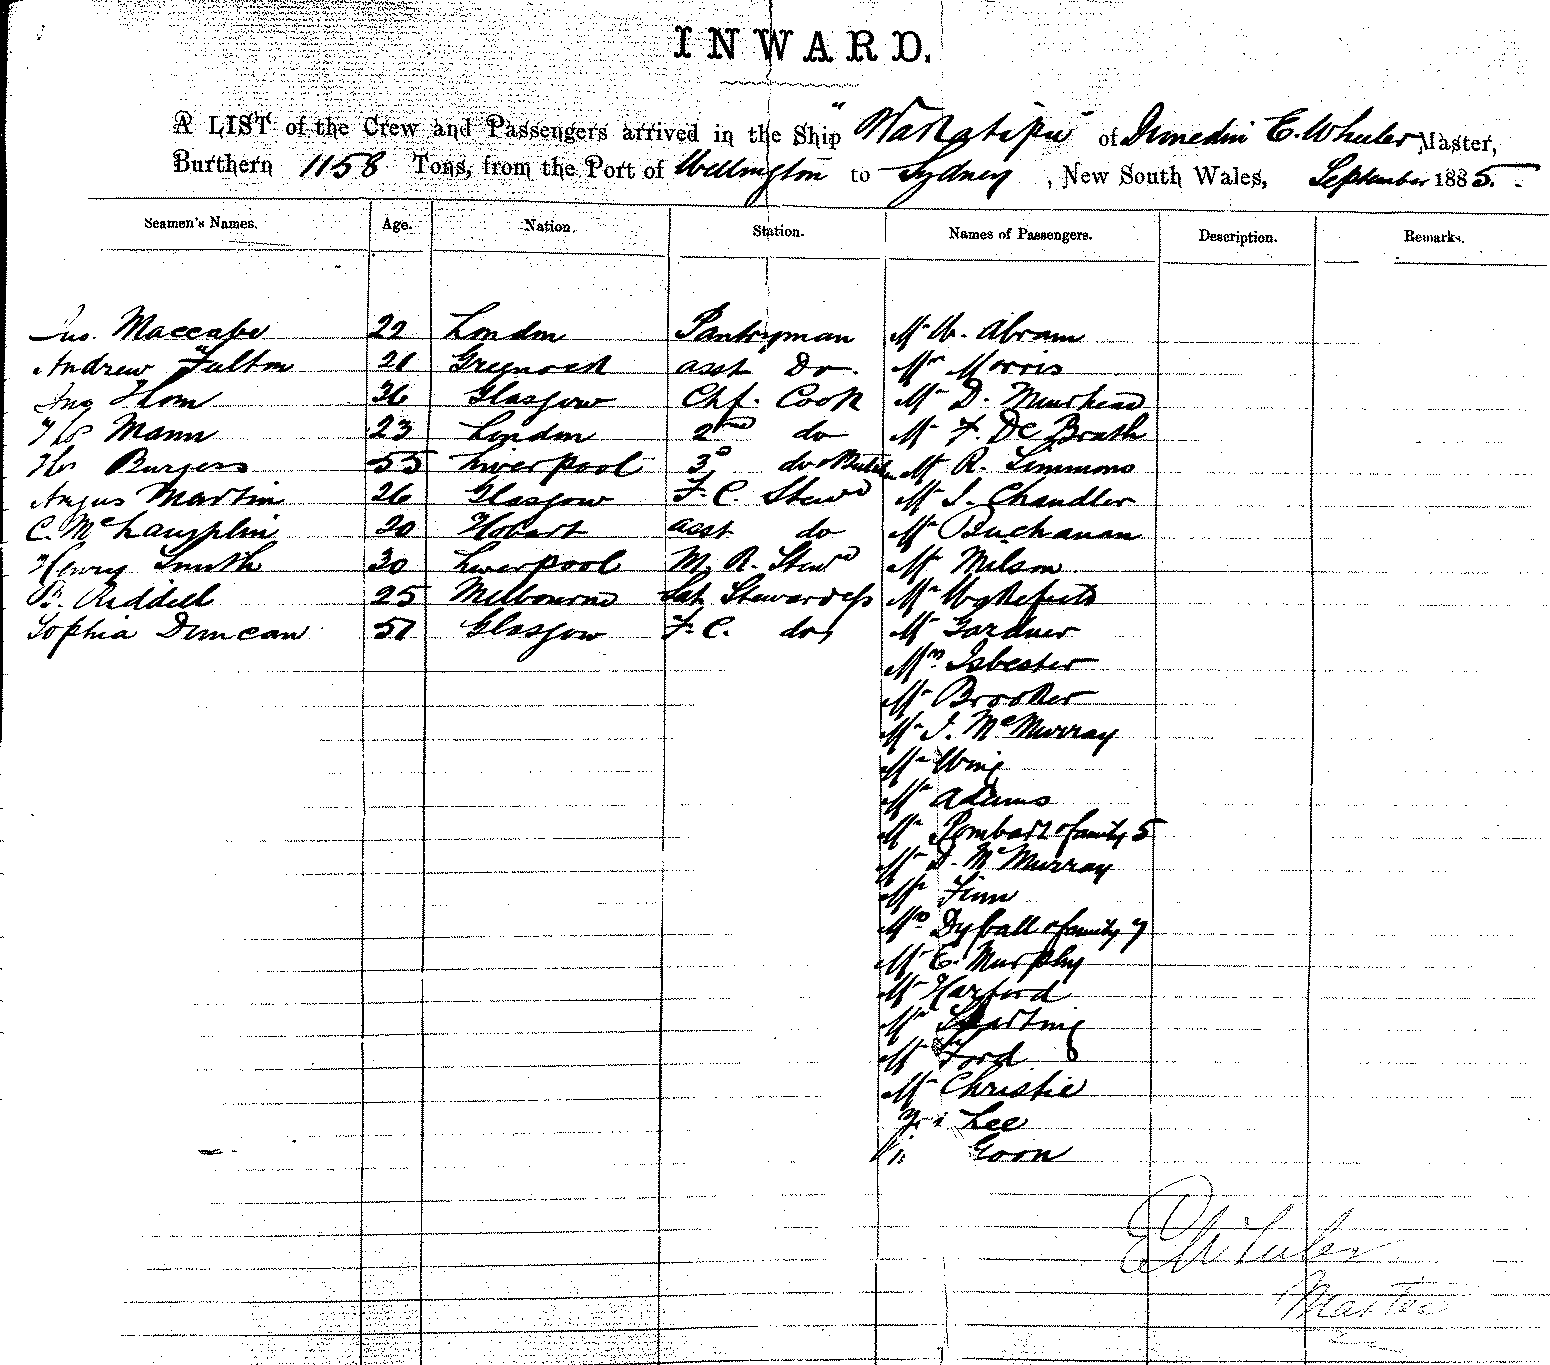 INWARD.
A LIST of the Crew and Passengers arrived in the Ship "Wakatipu" of Dunedin E. Wheeler Master,
Burthern 1158 Tons, from the Port of Wellington to Sydney, New South Wales, September 1885.
Seamen's Names. Age. Nation. Station. Names of Passengers. Description. Remarks.
Jas. Maccabe 22 London Pantryman Mr W. Abram
Andrew Fulton 21 Greenock asst Do. Mr Morris
Thom 36 Glasgow Chf. Cook Mr D. Muirhead
Mann 23 London 2nd do Mr F. De Brath
Burgess 55 Liverpool 3d do Mr R. Simmons
Angus Martin 26 Glasgow F. C. Stewd Mr J. Chandler
C. McLaughlin 20 Hobart asst do Mr Buchanan
Henry Smith 30 Liverpool M. R. Stewd Mr Milson
B. Riddell 25 Melbourne Stewardess Mr
Sophia Duncan 51 Glasgow F. C. do, Mr Gardner
Mrs Isbester
Mr Brooker
Mr J. McMurray
Mr Wing
Mr Adams
Mr & family 5
Mr D. McMurray
Mr Finn
Mrs Dyball & family 7
Mr E. Murphy
Mr Harford
Mr
Mr Ford
Mr Christie
Lee
Goon
E Wheeler
Master